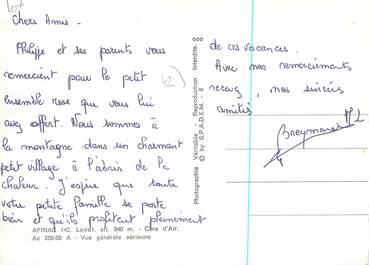 Chers Amis -
Philippe et ses parents vous
remercient pour le petit
ensemble rose que vous lui
avez offert. Nous sommes à
la montagne dans un charmant
petit village à l'abris de la
chaleur. J'espère que toute
votre petite famille se porte
bien et qu'ils profitent pleinement
APINAC (42. Loire), alt. 940 m. - Cure d'Air.
Ac 200-58 A - Vue générale aérienne
Photographie Véritable - Reproduction Interdite.
© by S.P.A.D.E.M. - 6
de ces vacances.
Avec nos remerciements
recevez, nos sincères
amitiés